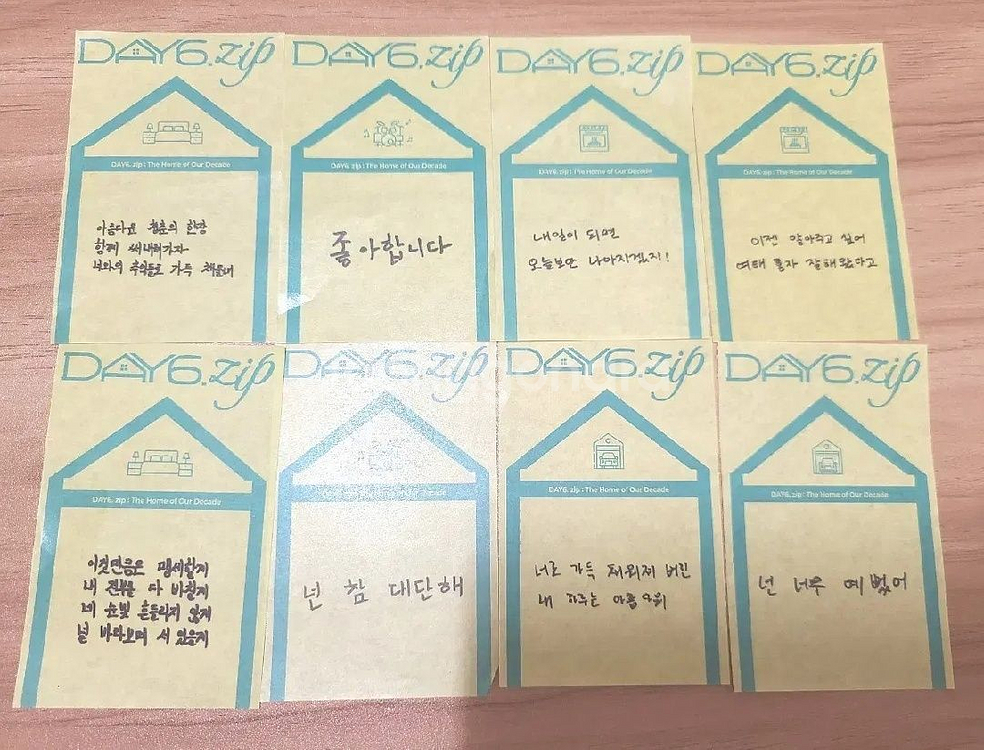 DAY6.zip
DAY6.zip : The Home of Our Decade
아름다운 청춘의 한장
함께 써내려가자
너와의 추억들로 가득 채울래
DAY6.zip
DAY6.zip : The Home of Our Decade
좋아합니다
DAY6.zip
DAY6.zip : The Home of Our Decade
내일이 되면
오늘보단 나아지겠지!
DAY6.zip
DAY6.zip : The Home of Our Decade
이젠 알아주고 싶어
여태 혼자 잘해왔다고
DAY6.zip
DAY6.zip : The Home of Our Decade
이것만음은 맹세할게
내 전부를 다 바칠게
네 눈빛 흔들리지 않게
널 바라보며 서 있을게
DAY6.zip
DAY6.zip : The Home of Our Decade
넌 참 대단해
DAY6.zip
DAY6.zip : The Home of Our Decade
너로 가득 채워져 버린
내 하루는 아름다워
DAY6.zip
DAY6.zip : The Home of Our Decade
넌 너무 예뻤어